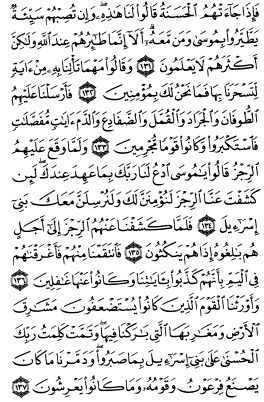 فَإِذَا جَآءَتْهُمُ ٱلْحَسَنَةُ قَالُوا۟ لَنَا هَـٰذِهِۦ ۖ وَإِن تُصِبْهُمْ سَيِّئَةٌ
يَطَّيَّرُوا۟ بِمُوسَىٰ وَمَن مَّعَهُۥٓ ۗ أَلَآ إِنَّمَا طَـٰٓئِرُهُمْ عِندَ ٱللَّهِ وَلَـٰكِنَّ
أَكْثَرَهُمْ لَا يَعْلَمُونَ ﴿١٣١﴾ وَقَالُوا۟ مَهْمَا تَأْتِنَا بِهِۦ مِنْ ءَايَةٍ
لِّتَسْحَرَنَا بِهَا فَمَا نَحْنُ لَكَ بِمُؤْمِنِينَ ﴿١٣٢﴾ فَأَرْسَلْنَا عَلَيْهِمُ
ٱلطُّوفَانَ وَٱلْجَرَادَ وَٱلْقُمَّلَ وَٱلضَّفَادِعَ وَٱلدَّمَ ءَايَـٰتٍ مُّفَصَّلَـٰتٍ
فَٱسْتَكْبَرُوا۟ وَكَانُوا۟ قَوْمًا مُّجْرِمِينَ ﴿١٣٣﴾ وَلَمَّا وَقَعَ عَلَيْهِمُ
ٱلرِّجْزُ قَالُوا۟ يَـٰمُوسَى ٱدْعُ لَنَا رَبَّكَ بِمَا عَهِدَ عِندَكَ ۖ لَئِن
كَشَفْتَ عَنَّا ٱلرِّجْزَ لَنُؤْمِنَنَّ لَكَ وَلَنُرْسِلَنَّ مَعَكَ بَنِىٓ
إِسْرَٰٓءِيلَ ﴿١٣٤﴾ فَلَمَّا كَشَفْنَا عَنْهُمُ ٱلرِّجْزَ إِلَىٰٓ أَجَلٍ
هُم بَـٰلِغُوهُ إِذَا هُمْ يَنكُثُونَ ﴿١٣٥﴾ فَٱنتَقَمْنَا مِنْهُمْ فَأَغْرَقْنَـٰهُمْ
فِى ٱلْيَمِّ بِأَنَّهُمْ كَذَّبُوا۟ بِـَٔايَـٰتِنَا وَكَانُوا۟ عَنْهَا غَـٰفِلِينَ ﴿١٣٦﴾
وَأَوْرَثْنَا ٱلْقَوْمَ ٱلَّذِينَ كَانُوا۟ يُسْتَضْعَفُونَ مَشَـٰرِقَ
ٱلْأَرْضِ وَمَغَـٰرِبَهَا ٱلَّتِى بَـٰرَكْنَا فِيهَا ۖ وَتَمَّتْ كَلِمَتُ رَبِّكَ
ٱلْحُسْنَىٰ عَلَىٰ بَنِىٓ إِسْرَٰٓءِيلَ بِمَا صَبَرُوا۟ ۖ وَدَمَّرْنَا مَا كَانَ
يَصْنَعُ فِرْعَوْنُ وَقَوْمُهُۥ وَمَا كَانُوا۟ يَعْرِشُونَ ﴿١٣٧﴾